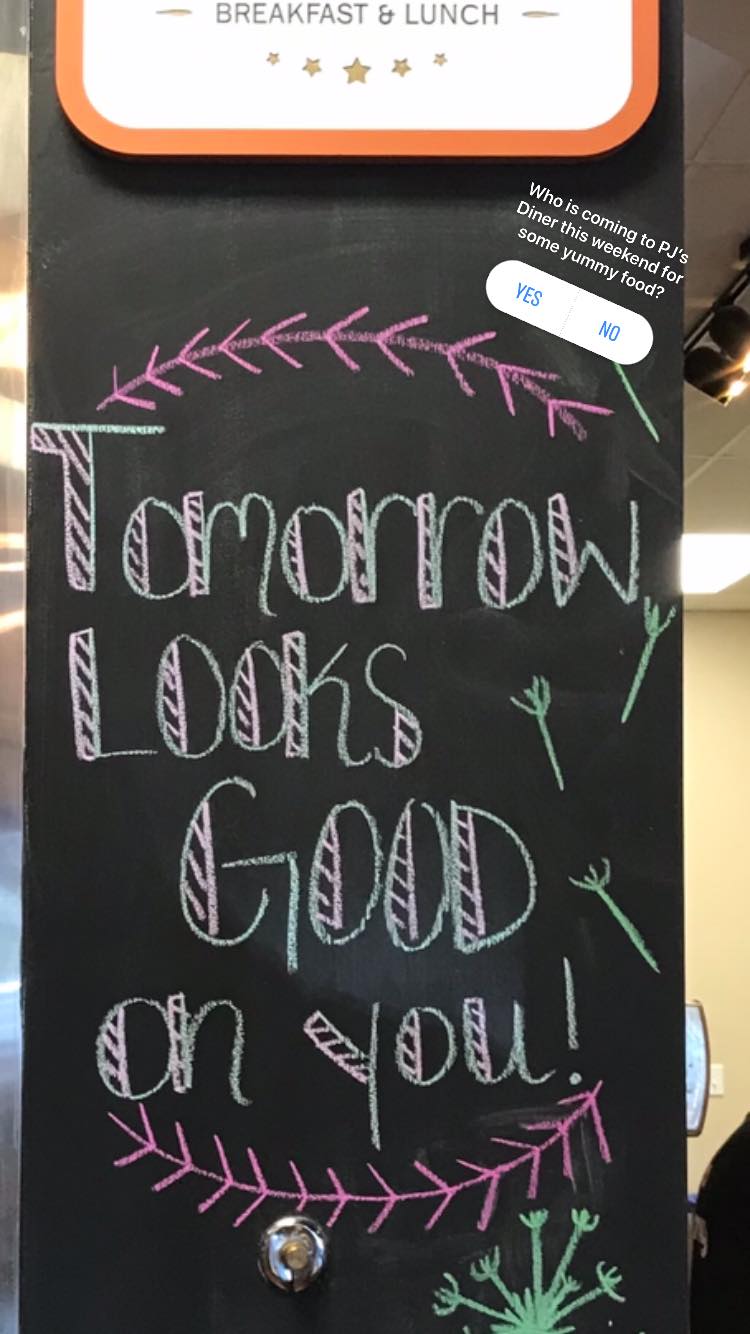 BREAKFAST & LUNCH
Who is coming to PJ's
Diner this weekend for
some yummy food?
YES NO
Tomorrow
Looks
GOOD
on you!